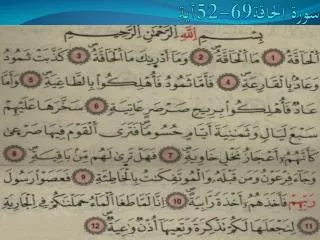 سورة الحاقة69-52آية
بِسْمِ اللَّهِ الرَّحْمَٰنِ الرَّحِيمِ
ٱلْحَآقَّةُ 1 مَا ٱلْحَآقَّةُ 2 وَمَآ أَدْرَىٰكَ مَا ٱلْحَآقَّةُ 3 كَذَّبَتْ ثَمُودُ
وَعَادٌۢ بِٱلْقَارِعَةِ 4 فَأَمَّا ثَمُودُ فَأُهْلِكُوا۟ بِٱلطَّاغِيَةِ 5 وَأَمَّا
عَادٌ فَأُهْلِكُوا۟ بِرِيحٍ صَرْصَرٍ عَاتِيَةٍ 6 سَخَّرَهَا عَلَيْهِمْ
سَبْعَ لَيَالٍ وَثَمَٰنِيَةَ أَيَّامٍ حُسُومًا فَتَرَى ٱلْقَوْمَ فِيهَا صَرْعَىٰ
كَأَنَّهُمْ أَعْجَازُ نَخْلٍ خَاوِيَةٍ 7 فَهَلْ تَرَىٰ لَهُم مِّنۢ بَاقِيَةٍ 8
وَجَآءَ فِرْعَوْنُ وَمَن قَبْلَهُۥ وَٱلْمُؤْتَفِكَٰتُ بِٱلْخَاطِئَةِ 9 فَعَصَوْا۟ رَسُولَ
رَبِّهِمْ فَأَخَذَهُمْ أَخْذَةً رَّابِيَةً 10 إِنَّا لَمَّا طَغَا ٱلْمَآءُ حَمَلْنَٰكُمْ فِى ٱلْجَارِيَةِ
11 لِنَجْعَلَهَا لَكُمْ تَذْكِرَةً وَتَعِيَهَآ أُذُنٌ وَٰعِيَةٌ 12